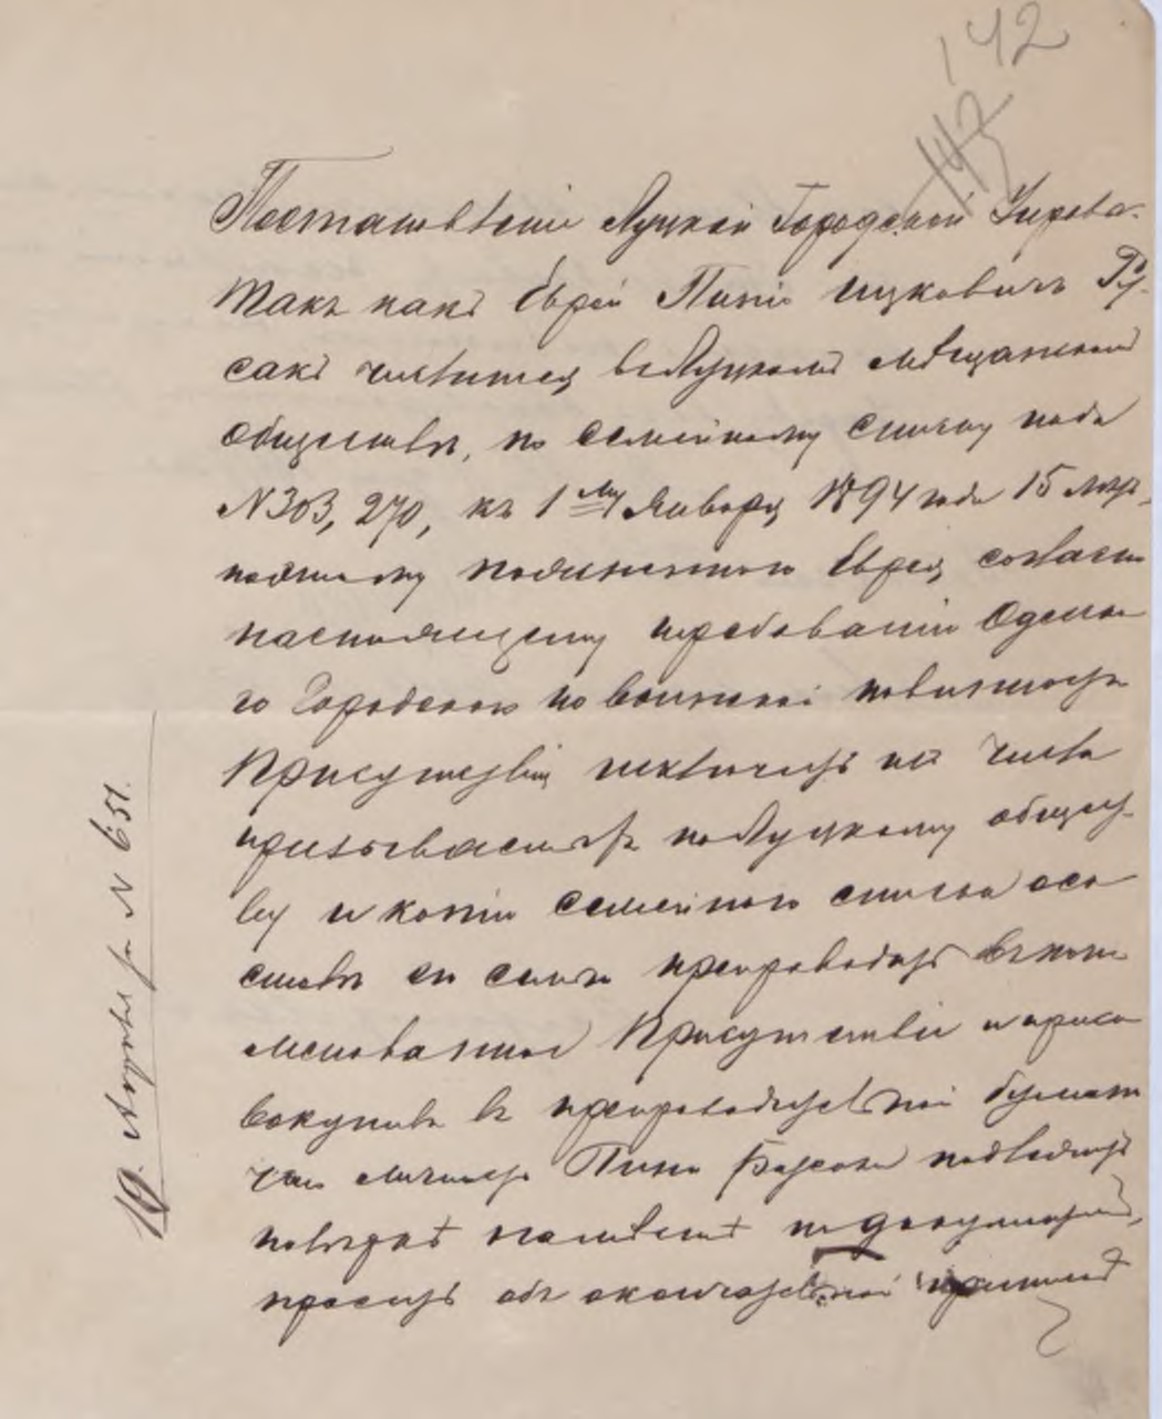 142
143
Постановленіе Луцкой Городской Управы.
Такъ какъ Еврей Пинхасъ Ицковичъ Ру-
сакъ числится въ Луцкомъ мѣщанскомъ
обществѣ, по семейному списку подъ
N 303, 270, къ 1му Января 1894 года 15 лѣтъ,
поименованнаго Еврея, согласно
настоящему требованію Одесска-
го Городского по воинской повинности
Присутствія исключить изъ числа
призываемыхъ по Луцкому общест-
ву и копію семейнаго списка о со-
ставѣ его семьи препроводить въ поиме-
нованное Присутствіе и присо-
вокупивъ въ препроводительной бумагѣ
что личность Пини Русака подлежитъ
повѣркѣ по документамъ,
просить объ окончательной
19 Апрѣля за N 651.